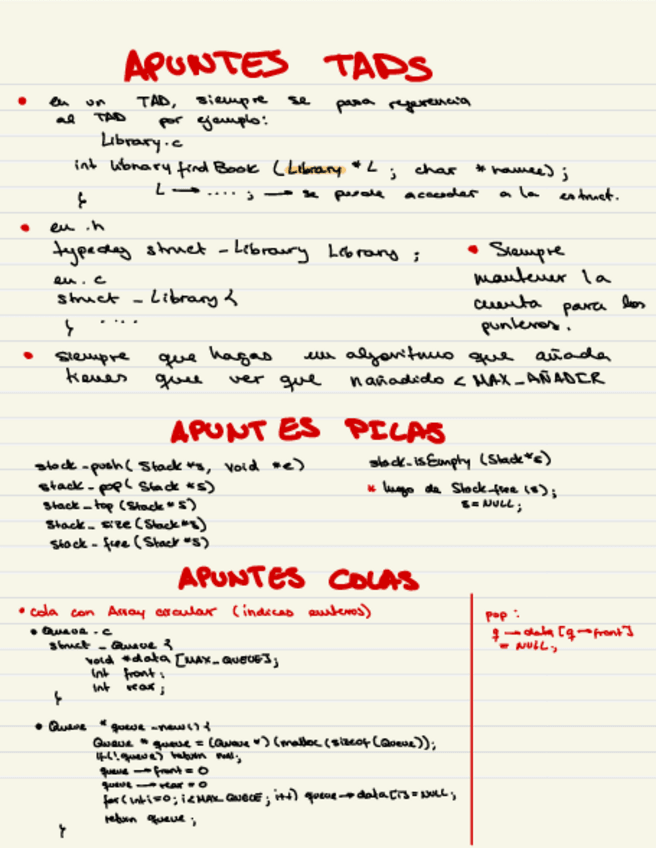 APUNTES TADS
• en un TAD, siempre se pasa referencia
al TAD por ejemplo:
Library.c
int library find Book (Library * L ; char * name);
{ L → .... ; → se puede acceder a la estruct.
• en .h
typedef struct _Library Library ;
en .c
struct _Library {
} ....
• Siempre
mantener la
cuenta para los
punteros.
• siempre que hagas un algoritmo que añada
tienes que ver que nañadido < MAX_AÑADIR
APUNTES PILAS
stack_push( Stack *s, void *e)
stack_pop( Stack *s)
stack_top (Stack *s)
Stack_ size (Stack *s)
Stack_free (Stack *s)
stack_isEmpty (Stack *s)
* luego de Stack_free (s);
s = NULL;
APUNTES COLAS
• cola con Array circular (indices enteros)
• Queue.c
struct _Queue {
void *data [MAX_QUEUE];
int front;
int rear;
}
• Queue * queue_new() {
Queue * queue = (Queue *) (malloc (sizeof (Queue));
if(!queue) return null;
queue → front = 0
queue → rear = 0
for (int i=0; i<MAX_QUEUE; i++) queue → data[i] = NULL;
return queue ;
}
pop :
q → data [q → front]
= NULL;